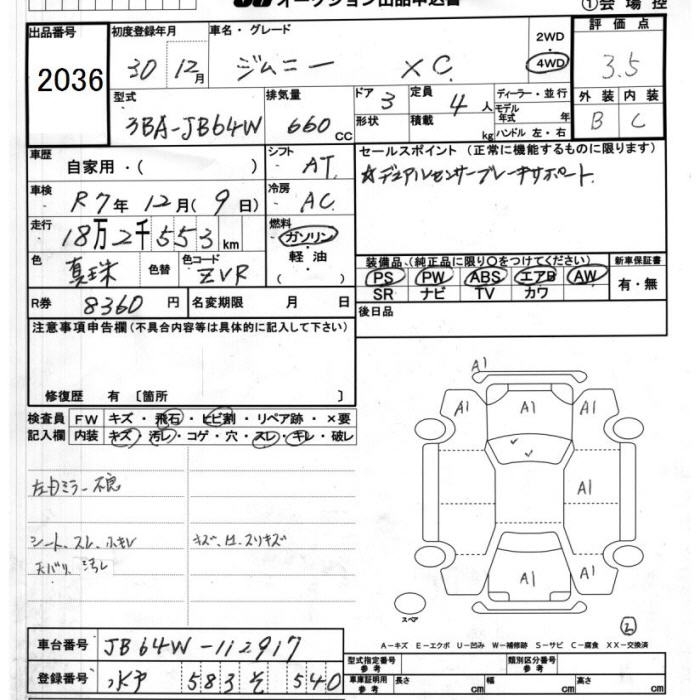 オークション出品申込書 ①会場控
出品番号 2036
初度登録年月 30 12月
車名・グレード ジムニー XC
2WD
4WD
評価点 3.5
型式 3BA-JB64W
排気量 660 CC
ドア 3
形状
定員 4人
積載 kg
ディーラー・並行
モデル年式 年
ハンドル 左・右
外装 内装
B C
車歴 自家用・( )
シフト AT
セールスポイント (正常に機能するものに限ります)
☆デュアルセンサーブレーキサポート
車検 R7年 12月(9日)
冷房 AC
走行 18万2千553km
燃料 ガソリン
軽油
( )
色 真珠 色替 色コード ZVR
装備品(純正品に限り○をつけてください) 新車保証書
PS PW ABS エアB AW 有・無
SR ナビ TV カワ
R券 8360円 名変期限 月 日
後日品
注意事項申告欄(不具合内容等は具体的に記入して下さい)
修復歴 有 〔箇所 〕
検査員 FW キズ・飛石・ヒビ割・リペア跡・×要
記入欄 内装 キズ・汚レ・コゲ・穴・スレ・キレ・破レ
左ミラー不良
シート、スレ、
天バリ、汚レ
キズ、スリキズ
A1
A1 A1 A1
A1
A1
A1 A1
スペア
②
A-キズ E-エクボ U-凹み W-補修跡 S-サビ C-腐食 XX-交換済
車台番号 JB64W-112917
登録番号 水戸 583 そ 540
型式指定番号 参考 類別区分番号 参考
車庫証明用 参考 長さ cm 幅 cm 高さ cm